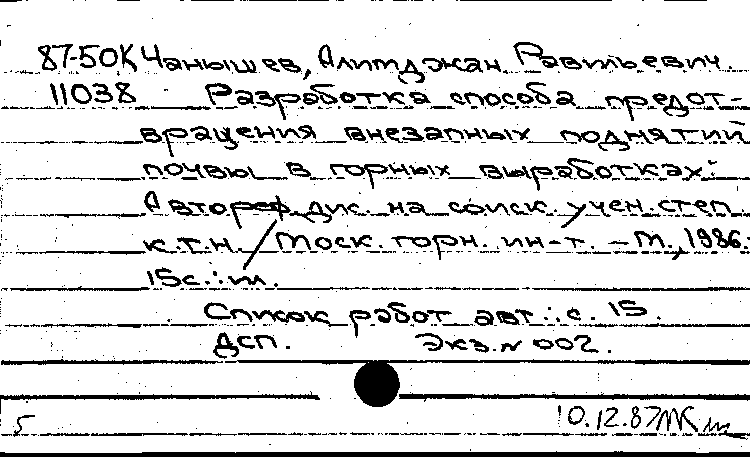 87-50К Чанышев, Алимджан Равильевич.
11038 Разработка способа предот-
вращения внезапных поднятий
почвы в горных выработках:
Автореф. дис. на соиск. учен. степ.
к.т.н. / Моск. горн. ин-т. – М., 1986.
15 с.: ил.
Список работ авт.: с. 15.
ДСП. Экз. N 002.
5 10.12.87